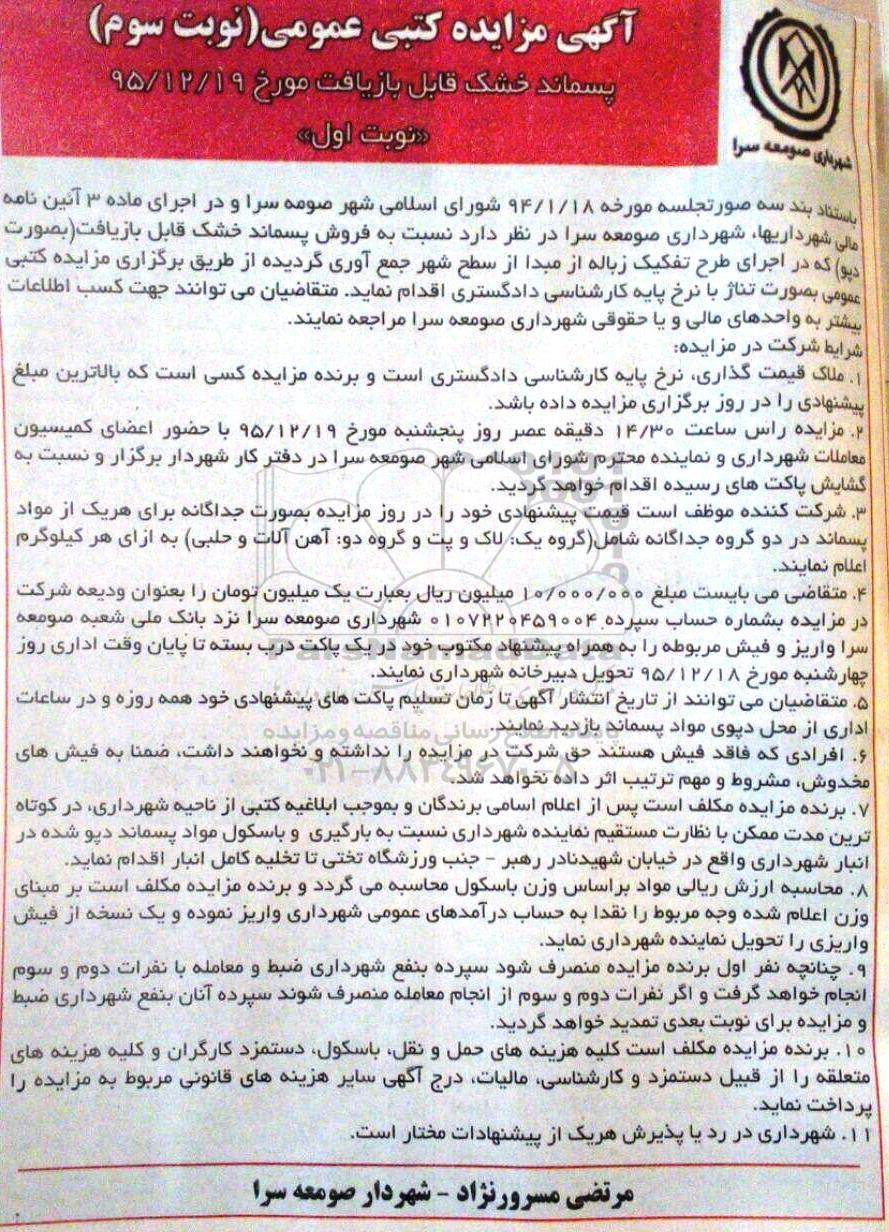 آگهی مزایده کتبی عمومی(نوبت سوم)
پسماند خشک قابل بازیافت مورخ ۹۵/۱۲/۱۹
«نوبت اول»
شهرداری صومعه سرا
باستناد بند سه صورتجلسه مورخه ۹۴/۱/۱۸ شورای اسلامی شهر صومه سرا و در اجرای ماده ۳ آئین نامه
مالی شهرداریها، شهرداری صومعه سرا در نظر دارد نسبت به فروش پسماند خشک قابل بازیافت(بصورت
دپو) که در اجرای طرح تفکیک زباله از مبدا از سطح شهر جمع آوری گردیده از طریق برگزاری مزایده کتبی
عمومی بصورت تناژ با نرخ پایه کارشناسی دادگستری اقدام نماید. متقاضیان می توانند جهت کسب اطلاعات
بیشتر به واحدهای مالی و یا حقوقی شهرداری صومعه سرا مراجعه نمایند.
شرایط شرکت در مزایده:
۱. ملاک قیمت گذاری، نرخ پایه کارشناسی دادگستری است و برنده مزایده کسی است که بالاترین مبلغ
پیشنهادی را در روز برگزاری مزایده داده باشد.
۲. مزایده راس ساعت ۱۴/۳۰ دقیقه عصر روز پنجشنبه مورخ ۹۵/۱۲/۱۹ با حضور اعضای کمیسیون
معاملات شهرداری و نماینده محترم شورای اسلامی شهر صومعه سرا در دفتر کار شهردار برگزار و نسبت به
گشایش پاکت های رسیده اقدام خواهد گردید.
۳. شرکت کننده موظف است قیمت پیشنهادی خود را در روز مزایده بصورت جداگانه برای هریک از مواد
پسماند در دو گروه جداگانه شامل(گروه یک: لاک و پت و گروه دو: آهن آلات و حلبی) به ازای هر کیلوگرم
اعلام نمایند.
۴. متقاضی می بایست مبلغ ۱۰/۰۰۰/۰۰۰ میلیون ریال بعبارت یک میلیون تومان را بعنوان ودیعه شرکت
در مزایده بشماره حساب سپرده ۰۱۰۷۲۲۰۴۵۹۰۰۴ شهرداری صومعه سرا نزد بانک ملی شعبه صومعه
سرا واریز و فیش مربوطه را به همراه پیشنهاد مکتوب خود در یک پاکت درب بسته تا پایان وقت اداری روز
چهارشنبه مورخ ۹۵/۱۲/۱۸ تحویل دبیرخانه شهرداری نمایند.
۵. متقاضیان می توانند از تاریخ انتشار آگهی تا زمان تسلیم پاکت های پیشنهادی خود همه روزه و در ساعات
اداری از محل دپوی مواد پسماند بازدید نمایند.
۶. افرادی که فاقد فیش هستند حق شرکت در مزایده را نداشته و نخواهند داشت، ضمنا به فیش های
مخدوش، مشروط و مهم ترتیب اثر داده نخواهد شد.
۷. برنده مزایده مکلف است پس از اعلام اسامی برندگان و بموجب ابلاغیه کتبی از ناحیه شهرداری، در کوتاه
ترین مدت ممکن با نظارت مستقیم نماینده شهرداری نسبت به بارگیری و باسکول مواد پسماند دپو شده در
انبار شهرداری واقع در خیابان شهیدنادر رهبر – جنب ورزشگاه تختی تا تخلیه کامل انبار اقدام نماید.
۸. محاسبه ارزش ریالی مواد براساس وزن باسکول محاسبه می گردد و برنده مزایده مکلف است بر مبنای
وزن اعلام شده وجه مربوط را نقدا به حساب درآمدهای عمومی شهرداری واریز نموده و یک نسخه از فیش
واریزی را تحویل نماینده شهرداری نماید.
۹. چنانچه نفر اول برنده مزایده منصرف شود سپرده بنفع شهرداری ضبط و معامله با نفرات دوم و سوم
انجام خواهد گرفت و اگر نفرات دوم و سوم از انجام معامله منصرف شوند سپرده آنان بنفع شهرداری ضبط
و مزایده برای نوبت بعدی تمدید خواهد گردید.
۱۰. برنده مزایده مکلف است کلیه هزینه های حمل و نقل، باسکول، دستمزد کارگران و کلیه هزینه های
متعلقه را از قبیل دستمزد و کارشناسی، مالیات، درج آگهی سایر هزینه های قانونی مربوط به مزایده را
پرداخت نماید.
۱۱. شهرداری در رد یا پذیرش هریک از پیشنهادات مختار است.
مرتضی مسرورنژاد – شهردار صومعه سرا
ParsNamadData
پایگاه اطلاع رسانی مناقصه و مزایده